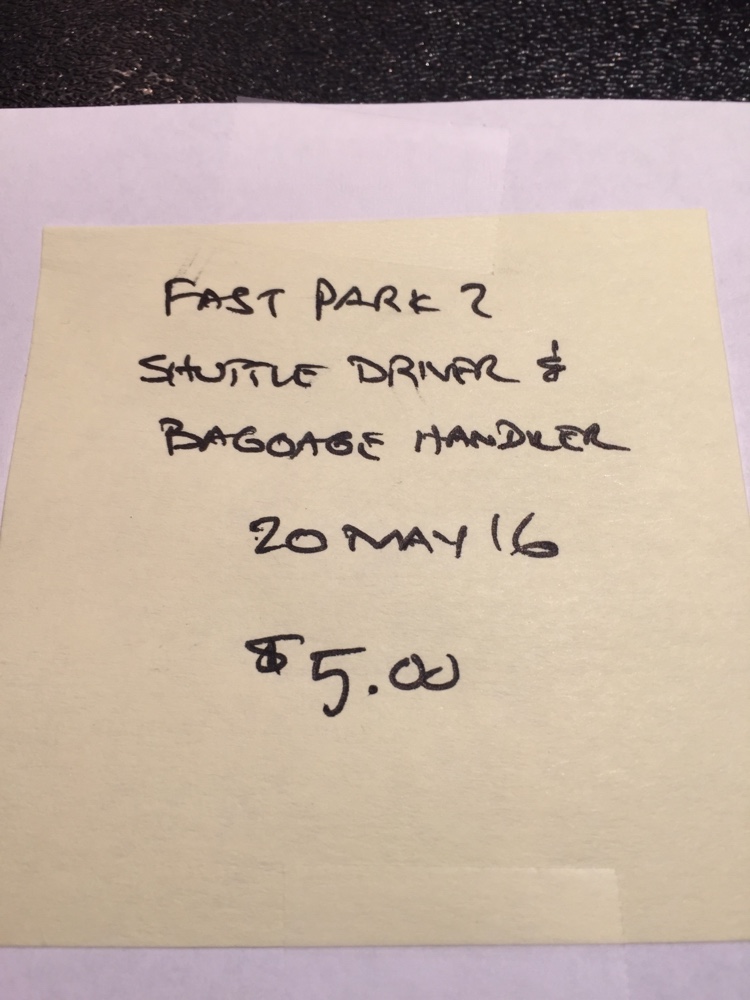 FAST PARK 2
SHUTTLE DRIVER &
BAGGAGE HANDLER
20 MAY 16
$5.00